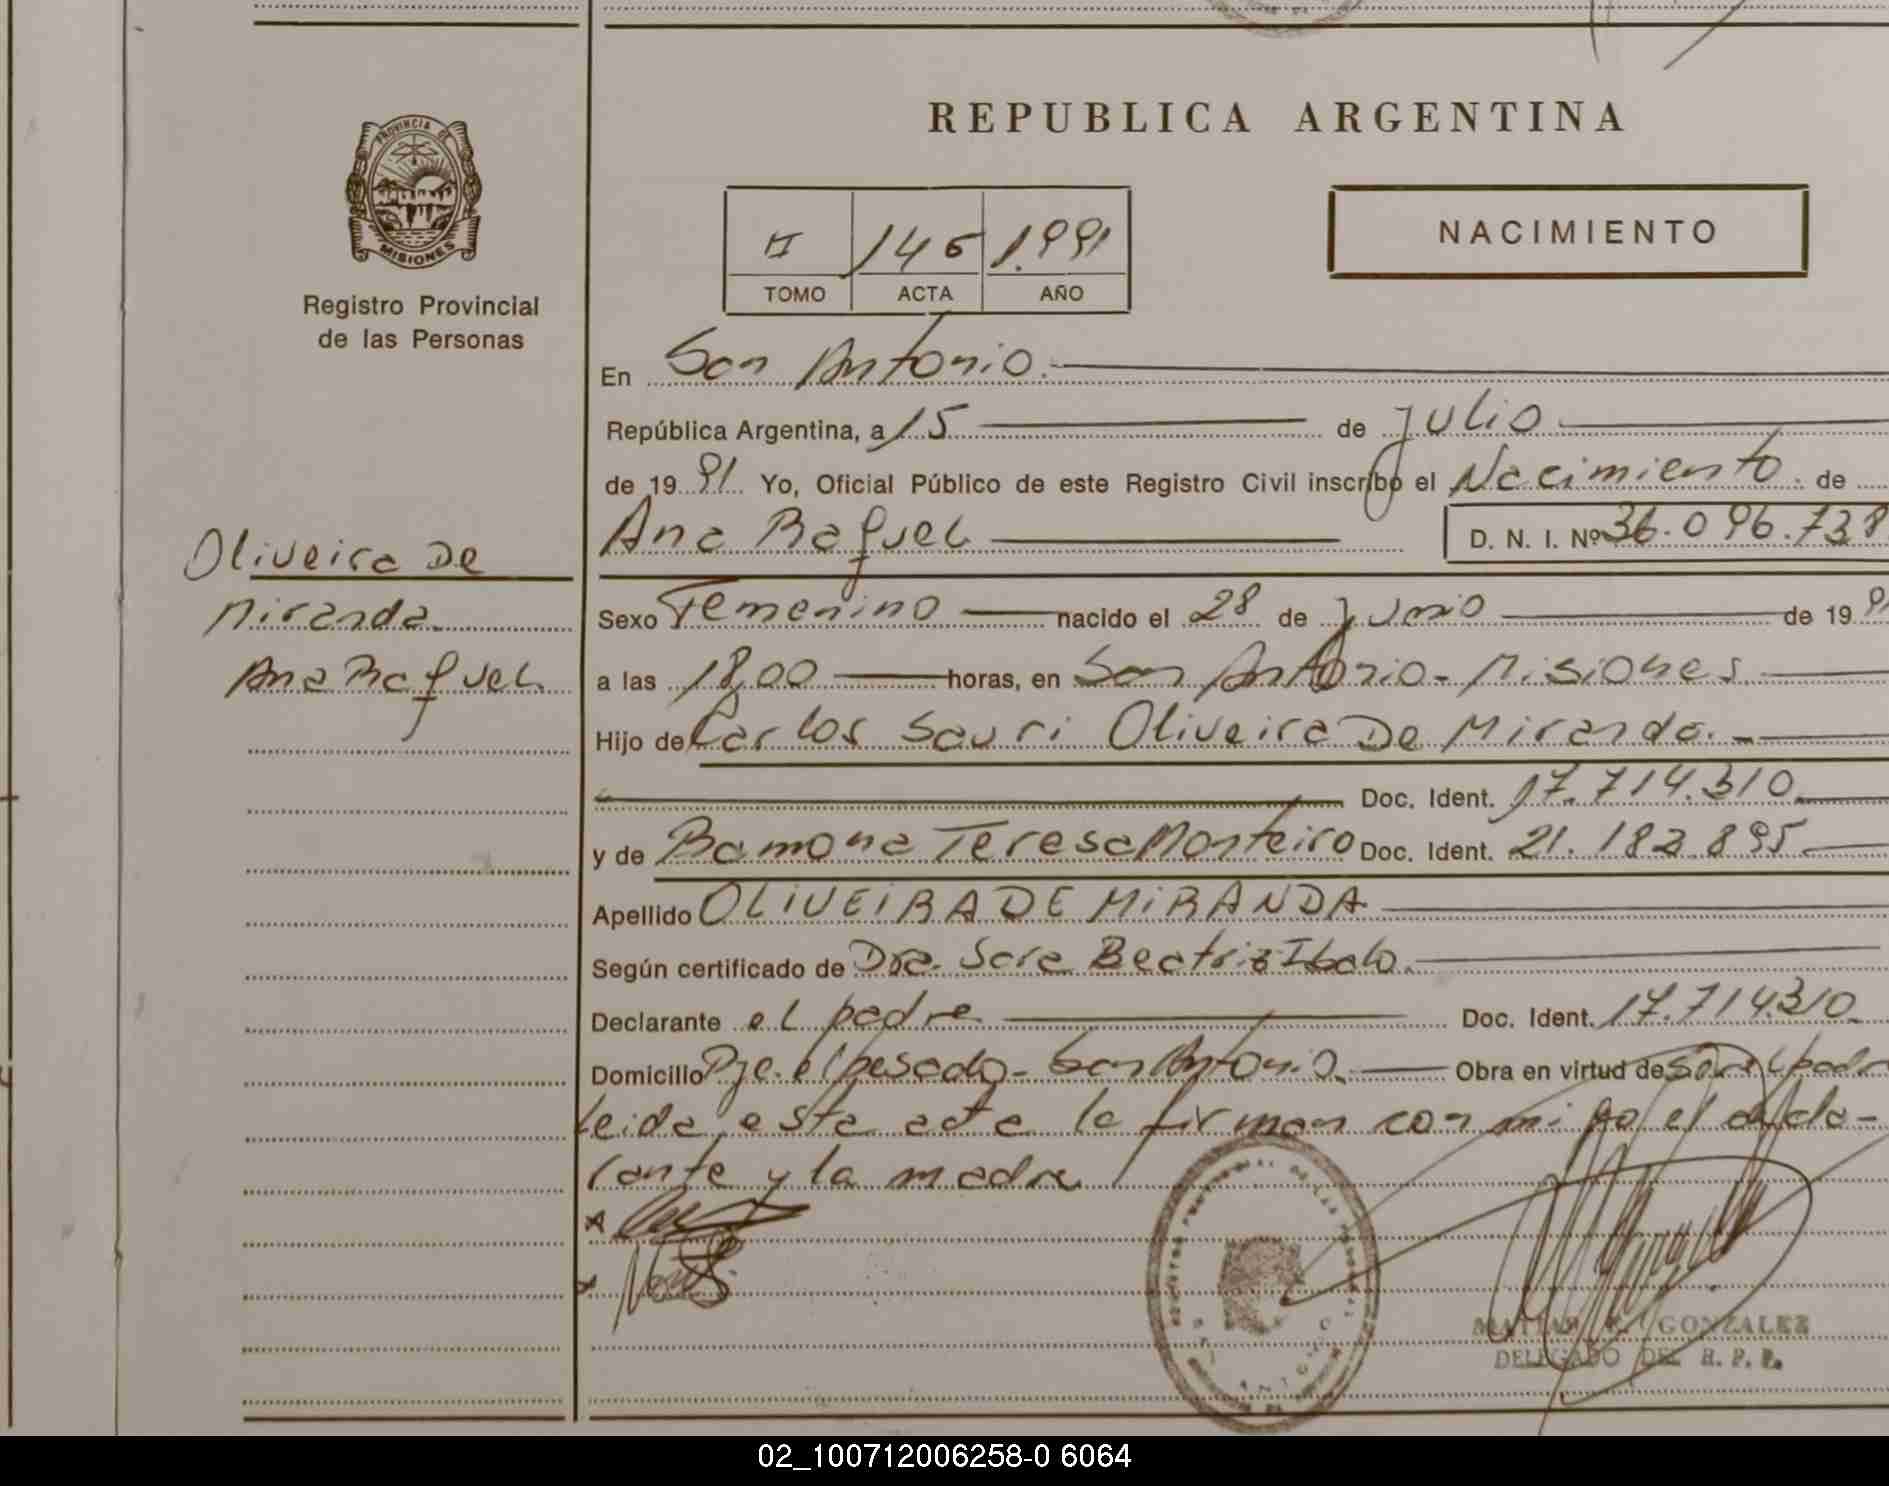 REPUBLICA ARGENTINA
PROVINCIA DE
MISIONES
Registro Provincial
de las Personas
NACIMIENTO
II 146 1.991
TOMO ACTA AÑO
En San Antonio.
República Argentina, a 15 de Julio
de 19 91 Yo, Oficial Público de este Registro Civil inscribo el Nacimiento de
Ana Raquel D. N. I. Nº 36.096.738
Oliveira De
Miranda
Ana Raquel
Sexo Femenino nacido el 28 de Junio de 19 91
a las 18,00 horas, en San Antonio - Misiones
Hijo de Carlos Sauri Oliveira De Miranda.-
Doc. Ident. 17.714.310
y de Ramona Teresa Monteiro Doc. Ident. 21.182.895
Apellido OLIVEIRA DE MIRANDA
Según certificado de Dra. Sara Beatriz Ibalo.
Declarante el padre Doc. Ident. 17.714.310
Domicilio Pje. el pesado - San Antonio. Obra en virtud de ser el padre
Leida este acta la firman con migo el decla-
rante y la madre
GONZALEZ
DELEGADO DEL R. P. P.
02_100712006258-0 6064